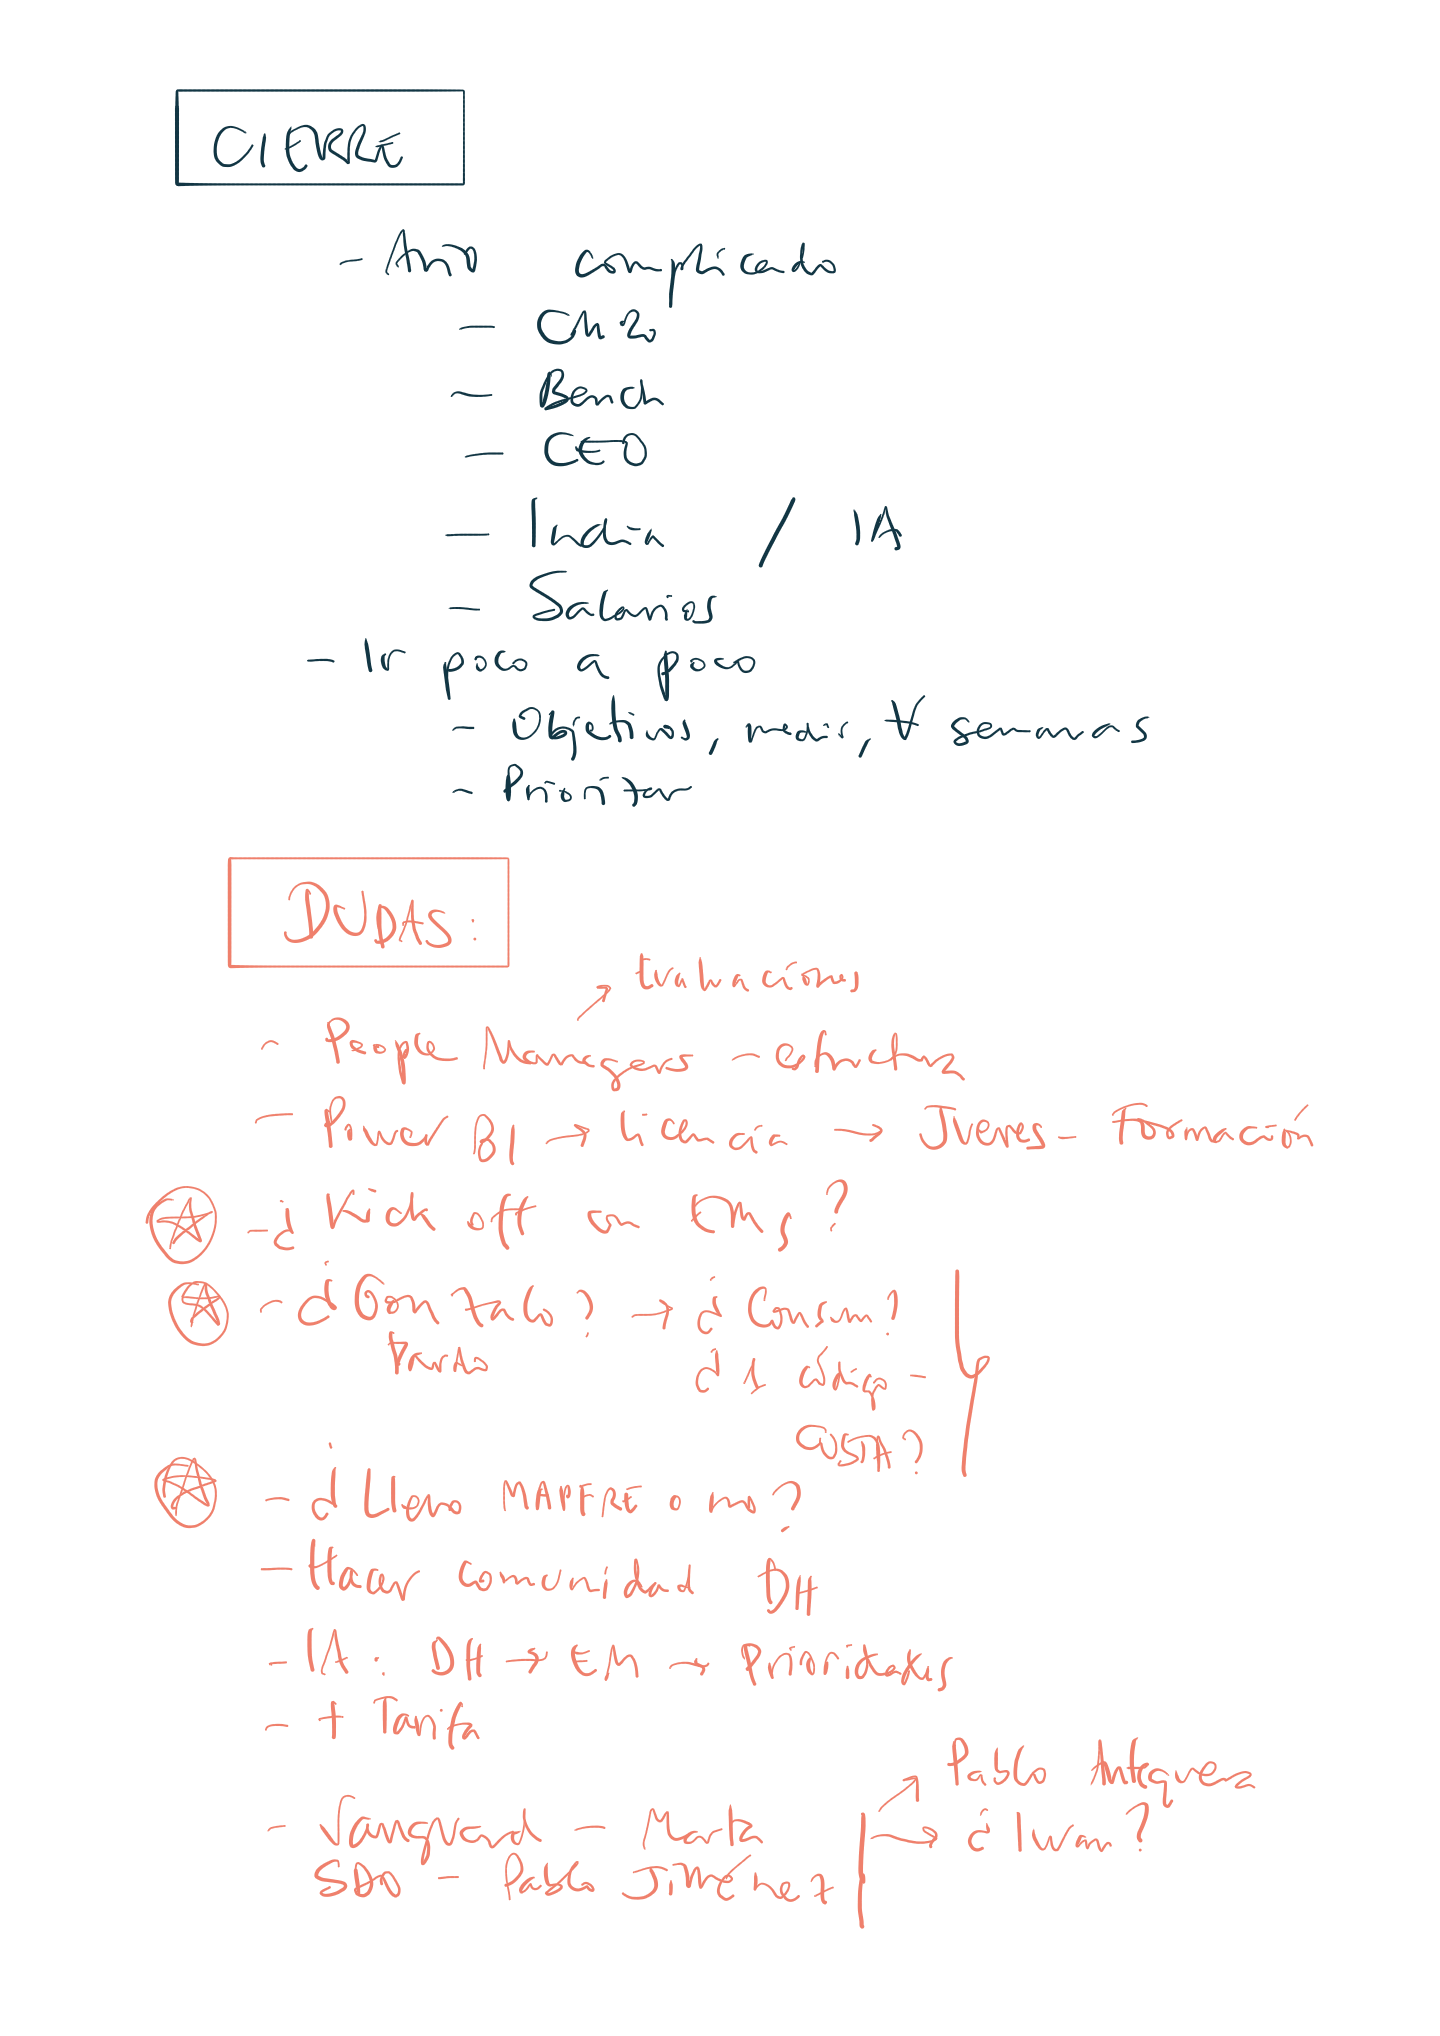 CIERRE
- Año complicado
- Ch20
- Bench
- CEO
- India / IA
- Salarios
- Ir poco a poco
- Objetivos, medir, ∀ semanas
- Priorizar
DUDAS:
→ Evaluaciones
- People Managers - estructura
- Power BI → licencia → Jueves - Formación
- ¿Kick off con EMs?
- ¿Gonzalo? → ¿Consum?
Pardo ¿1 código -
COSTA?
- ¿Llevo MAPFRE o no?
- Hacer comunidad DH
- IA: DH → EM → Prioridades
- + Tarifa
→ Pablo Antequera
- Vanguard - Marta → ¿Iwan?
SDO - Pablo Jiménez